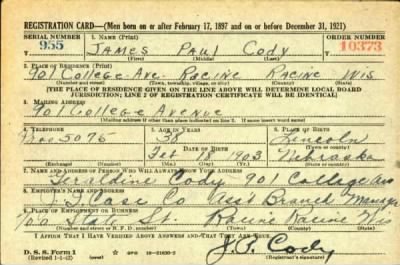 REGISTRATION CARD—(Men born on or after February 17, 1897 and on or before December 31, 1921)
SERIAL NUMBER 1. NAME (Print) ORDER NUMBER
955 JAMES Paul Cody 10373
(First) (Middle) (Last)
2. PLACE OF RESIDENCE (Print)
901 College Ave. Racine Racine Wis
(Number and street) (Town, township, village, or city) (County) (State)
[THE PLACE OF RESIDENCE GIVEN ON THE LINE ABOVE WILL DETERMINE LOCAL BOARD
JURISDICTION; LINE 2 OF REGISTRATION CERTIFICATE WILL BE IDENTICAL]
3. MAILING ADDRESS
901 College Avenue
[Mailing address if other than place indicated on line 2. If same insert word same]
4. TELEPHONE 5. AGE IN YEARS 6. PLACE OF BIRTH
5075 38 Lincoln
DATE OF BIRTH (Town or county)
Feb 1903 Nebraska
(Exchange) (Number) (Mo.) (Day) (Yr.) (State or country)
7. NAME AND ADDRESS OF PERSON WHO WILL ALWAYS KNOW YOUR ADDRESS
Geraldine Cody 901 College Ave
8. EMPLOYER'S NAME AND ADDRESS
J. I. Case Co Ass't Branch Manager
9. PLACE OF EMPLOYMENT OR BUSINESS
700 State St. Racine Racine Wis
(Number and street or R. F. D. number) (Town) (County) (State)
I AFFIRM THAT I HAVE VERIFIED ABOVE ANSWERS AND THAT THEY ARE TRUE.
D. S. S. Form 1
(Revised 1-1-42) (over) J. P. Cody